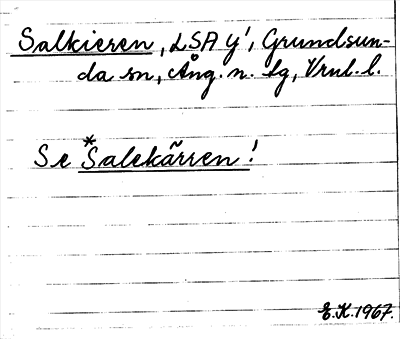 Salkieren, LSA y', Grundsun-
da sn, Ång. n. lg, Vrnl. l.
Se *Salekärren!
E.K. 1967.